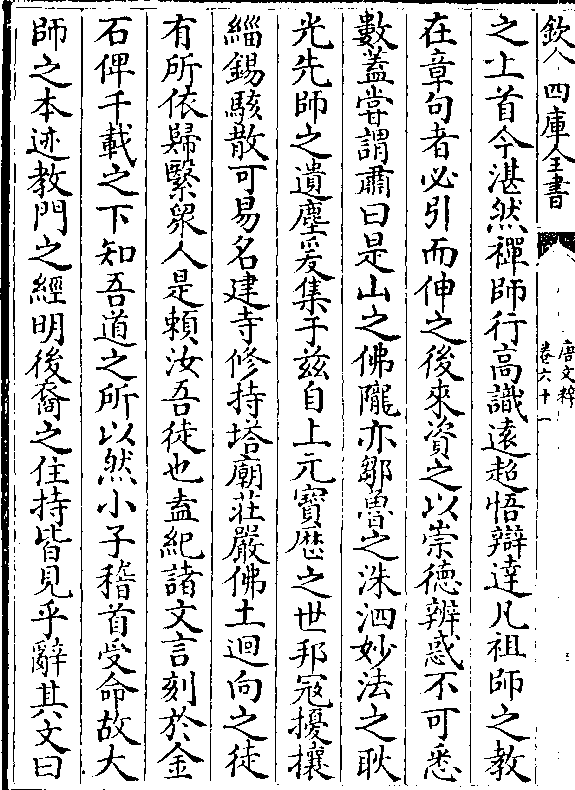 欽定四庫全書
唐文粹
卷六十一
之上首今湛然禪師行高識遠超悟辯達凡祖師之教
在章句者必引而伸之後來資之以崇德辨惑不可悉
數蓋嘗謂肅曰是山之佛隴亦鄒魯之洙泗妙法之耿
光先師之遺塵爰集于兹自上元寶厯之世邦寇擾攘
緇錫駭散可易名建寺修持塔廟莊嚴佛土迴向之徒
有所依歸繄衆人是賴汝吾徒也盍紀諸文言刻於金
石俾千載之下知吾道之所以然小子稽首受命故大
師之本迹教門之經明後裔之住持皆見乎辭其文曰